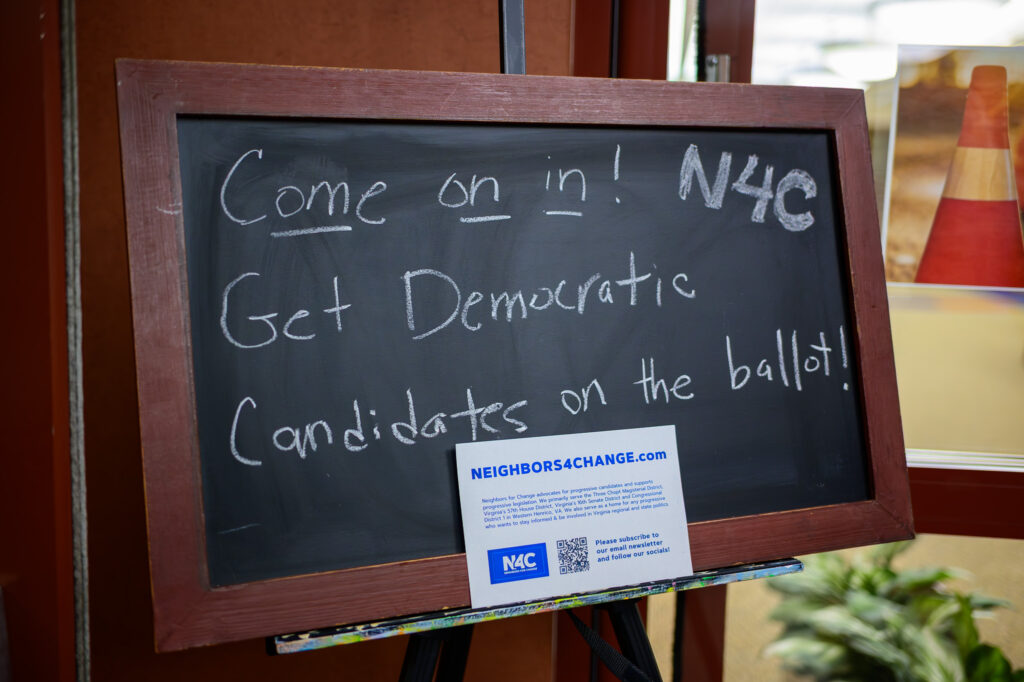 Come on in! N4C
Get Democratic
Candidates on the ballot!
NEIGHBORS4CHANGE.com
Neighbors for Change advocates for progressive candidates and supports
progressive legislation. We primarily serve the Three Chopt Magisterial District,
Virginia's 57th House District, Virginia's 16th Senate District and Congressional
District 1 in Western Henrico, VA. We also serve as a home for any progressive
who wants to stay informed & be involved in Virginia regional and state politics.
N4C
NEIGHBORS FOR CHANGE
Please subscribe to
our email newsletter
and follow our socials!